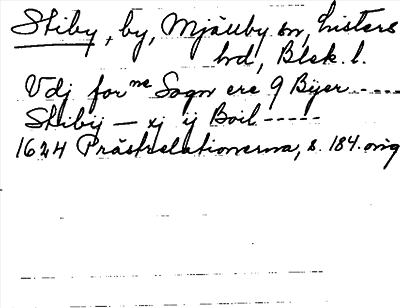 Stiby, by, Mjällby sn, Listers
hd, Blek. l.
Vdj for^ne Sogn ere 9 Byer ----
Stibij — xj ij Boil -----
1624 Prästrelationerna, s. 184. orig